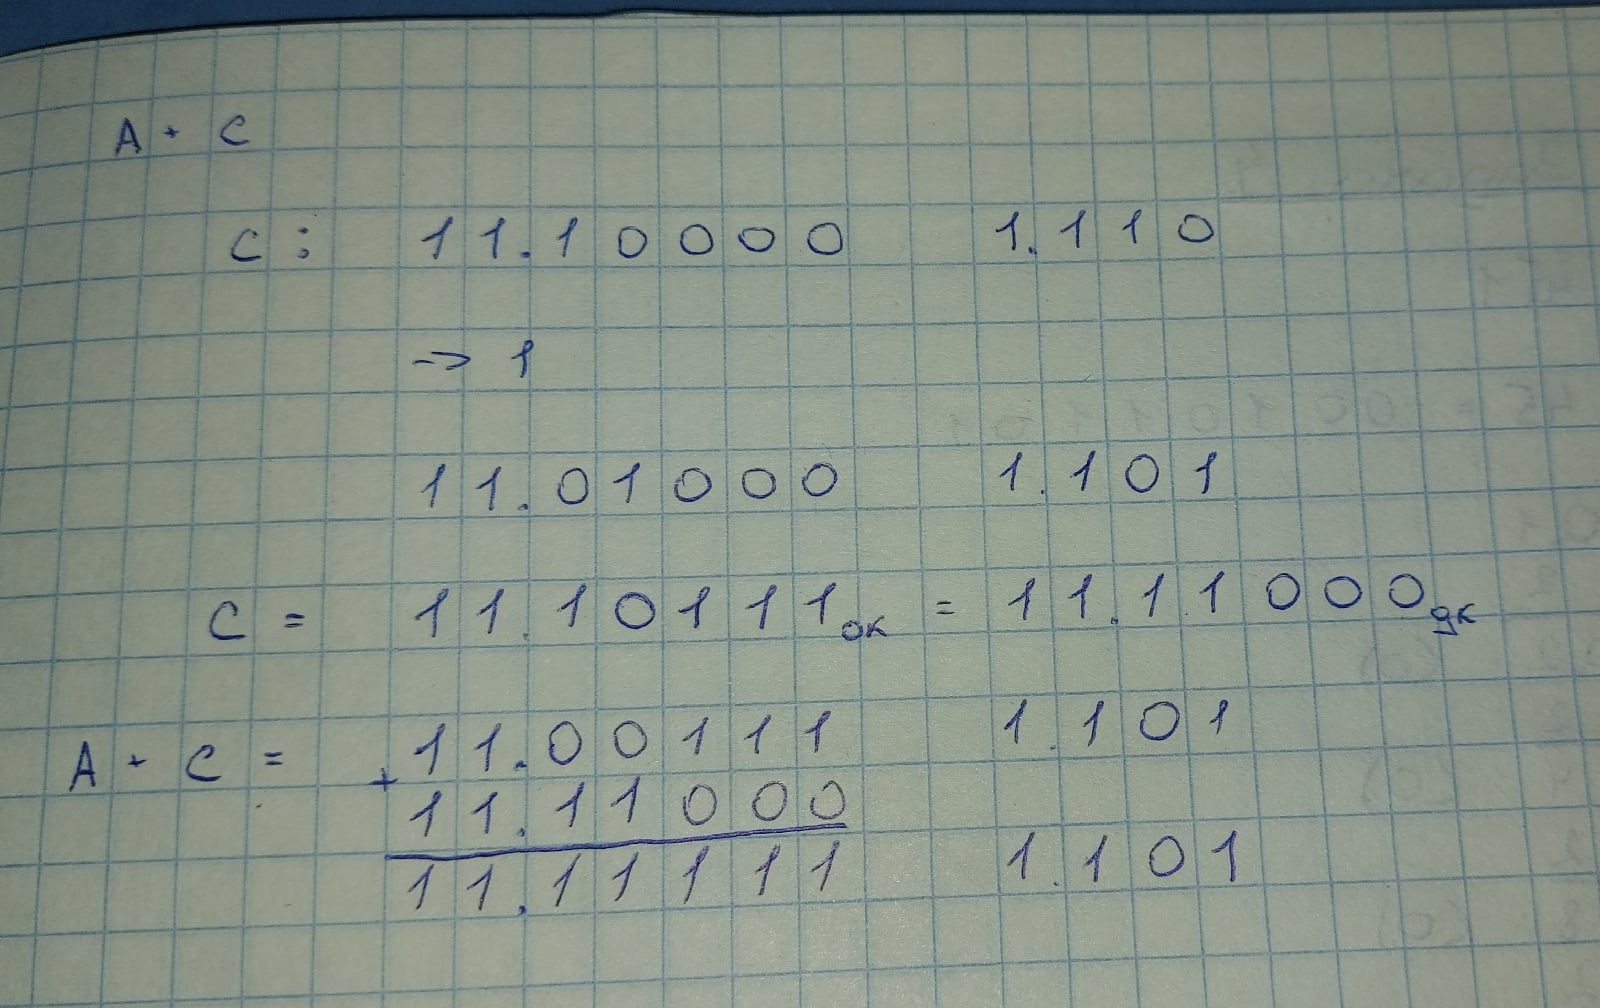 A + C
C : 11.10000 1.110
-> 1
11.01000 1.101
C = 11.10111ок = 11.11000дк
A + C = 11.00111 1.101
+ 11.11000
11.11111 1.101